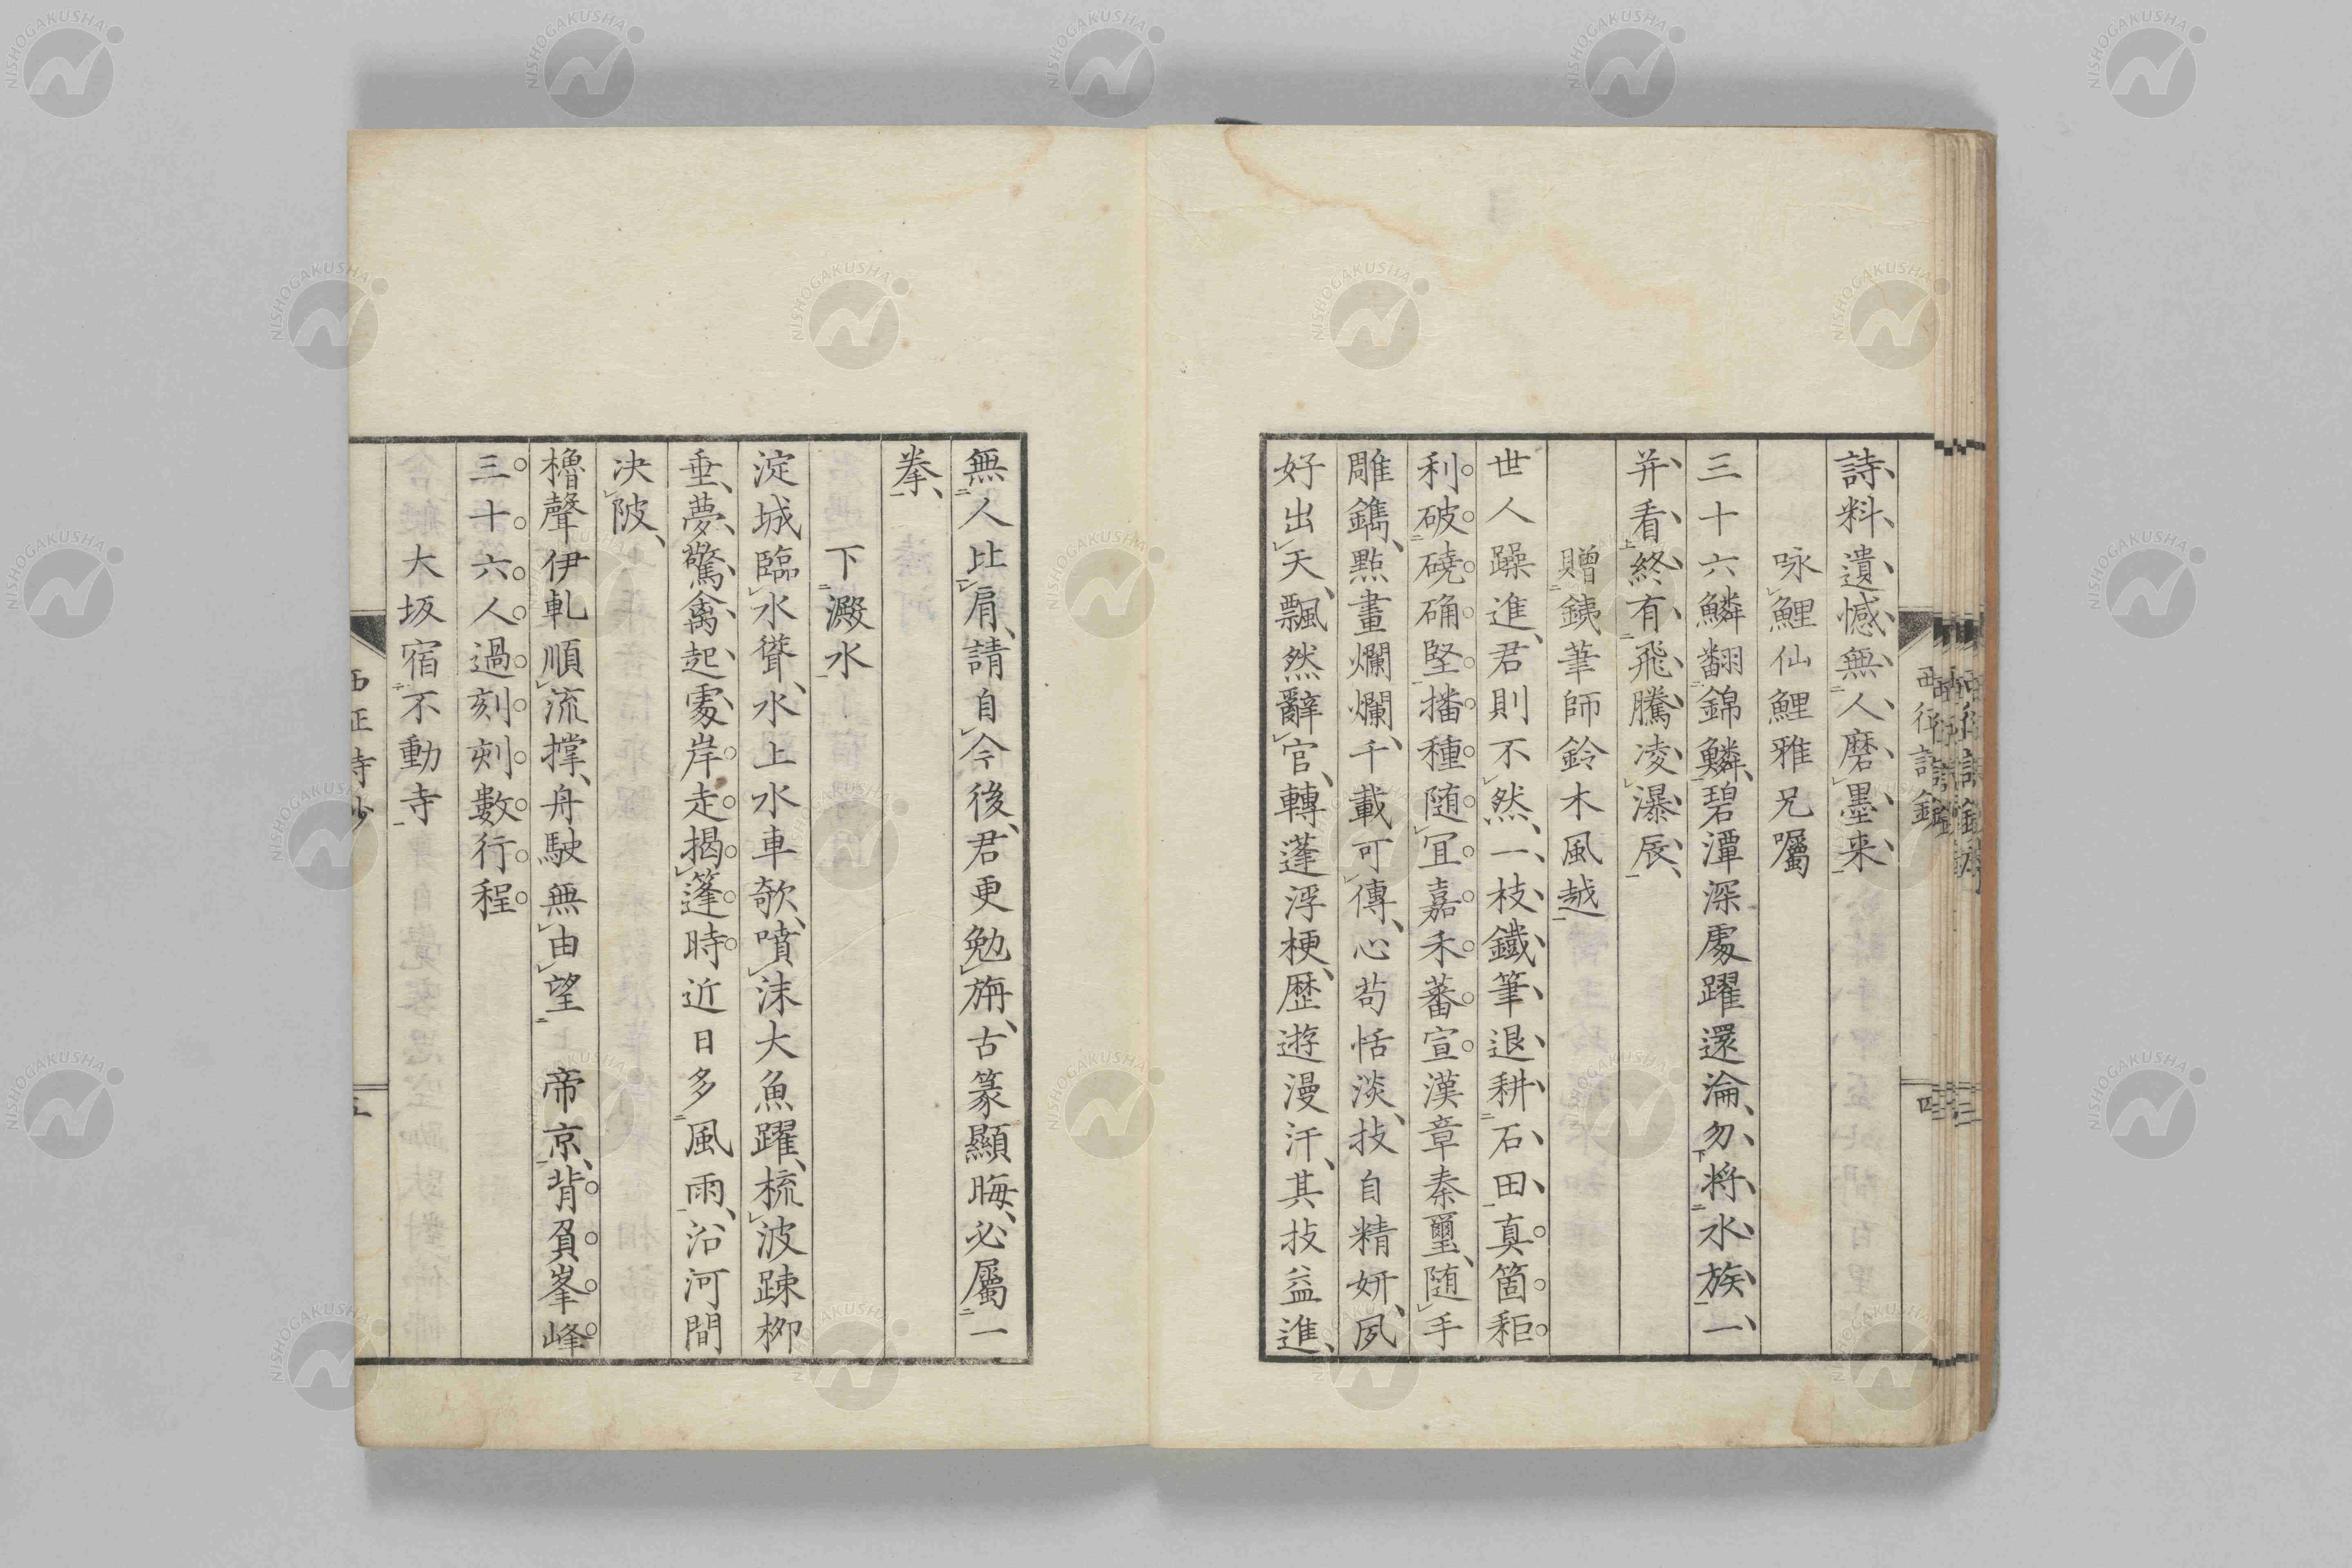 詩料遺憾無人磨墨来
咏鯉仙鯉雅兄囑
三十六鱗翻錦鱗碧潭深處躍還淪勿將水族一
并看終有飛騰凌瀑辰
贈銕筆師鈴木風越
世人躁進君則不然一枝鐵筆退耕石田真箇秬
利破磽确堅播種随冝嘉禾蕃宣漢章秦璽随手
雕鐫點畫爛爛千載可傳心苟恬淡技自精妍夙
好出天飄然辭官轉蓬浮梗歴遊漫汗其技益進
無人比肩請自今後君更勉旃古篆顯晦必屬一
拳
下澱水
淀城臨水聳水上水車欹噴沫大魚躍梳波踈栁
垂夢驚禽起處岸走揭篷時近日多風雨沿河間
决陂
櫓聲伊軋順流撑舟駛無由望帝京背負峯峰
三十六人過刻刻數行程
大坂宿不動寺
西征詩鈔
五
西征詩鈔
四
NISHOGAKUSHA